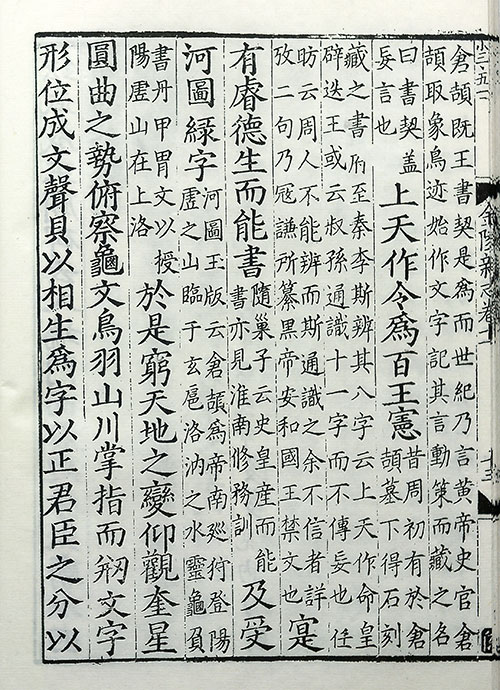 小三五一
倉頡既王書契是為而世紀乃言黃帝史官倉
頡取象鳥迹始作文字記其言動策而藏之名
曰書契蓋
妄言也
上天作令為百王憲
昔周初有於倉
頡墓下得石刻
藏之書府至秦李斯辨其八字云上天作命皇
辟迭王或云叔孫通識十一字而不傳妄也任
昉云周人不能辨而斯通識之余不信者詳
攷二句乃冦謙所纂黑帝安和國王禁文也
寔
有睿德生而能書
隨巢子云史皇産而能
書亦見淮南修務訓
及受
河圖緑字
河圖玉版云倉頡為帝南廵狩登陽
虛之山臨于玄扈洛汭之水靈龜負
書丹甲胃文以授
陽虛山在上洛
於是窮天地之變仰觀奎星
圓曲之勢俯察龜文鳥羽山川掌指而刱文字
形位成文聲具以相生為字以正君臣之分以